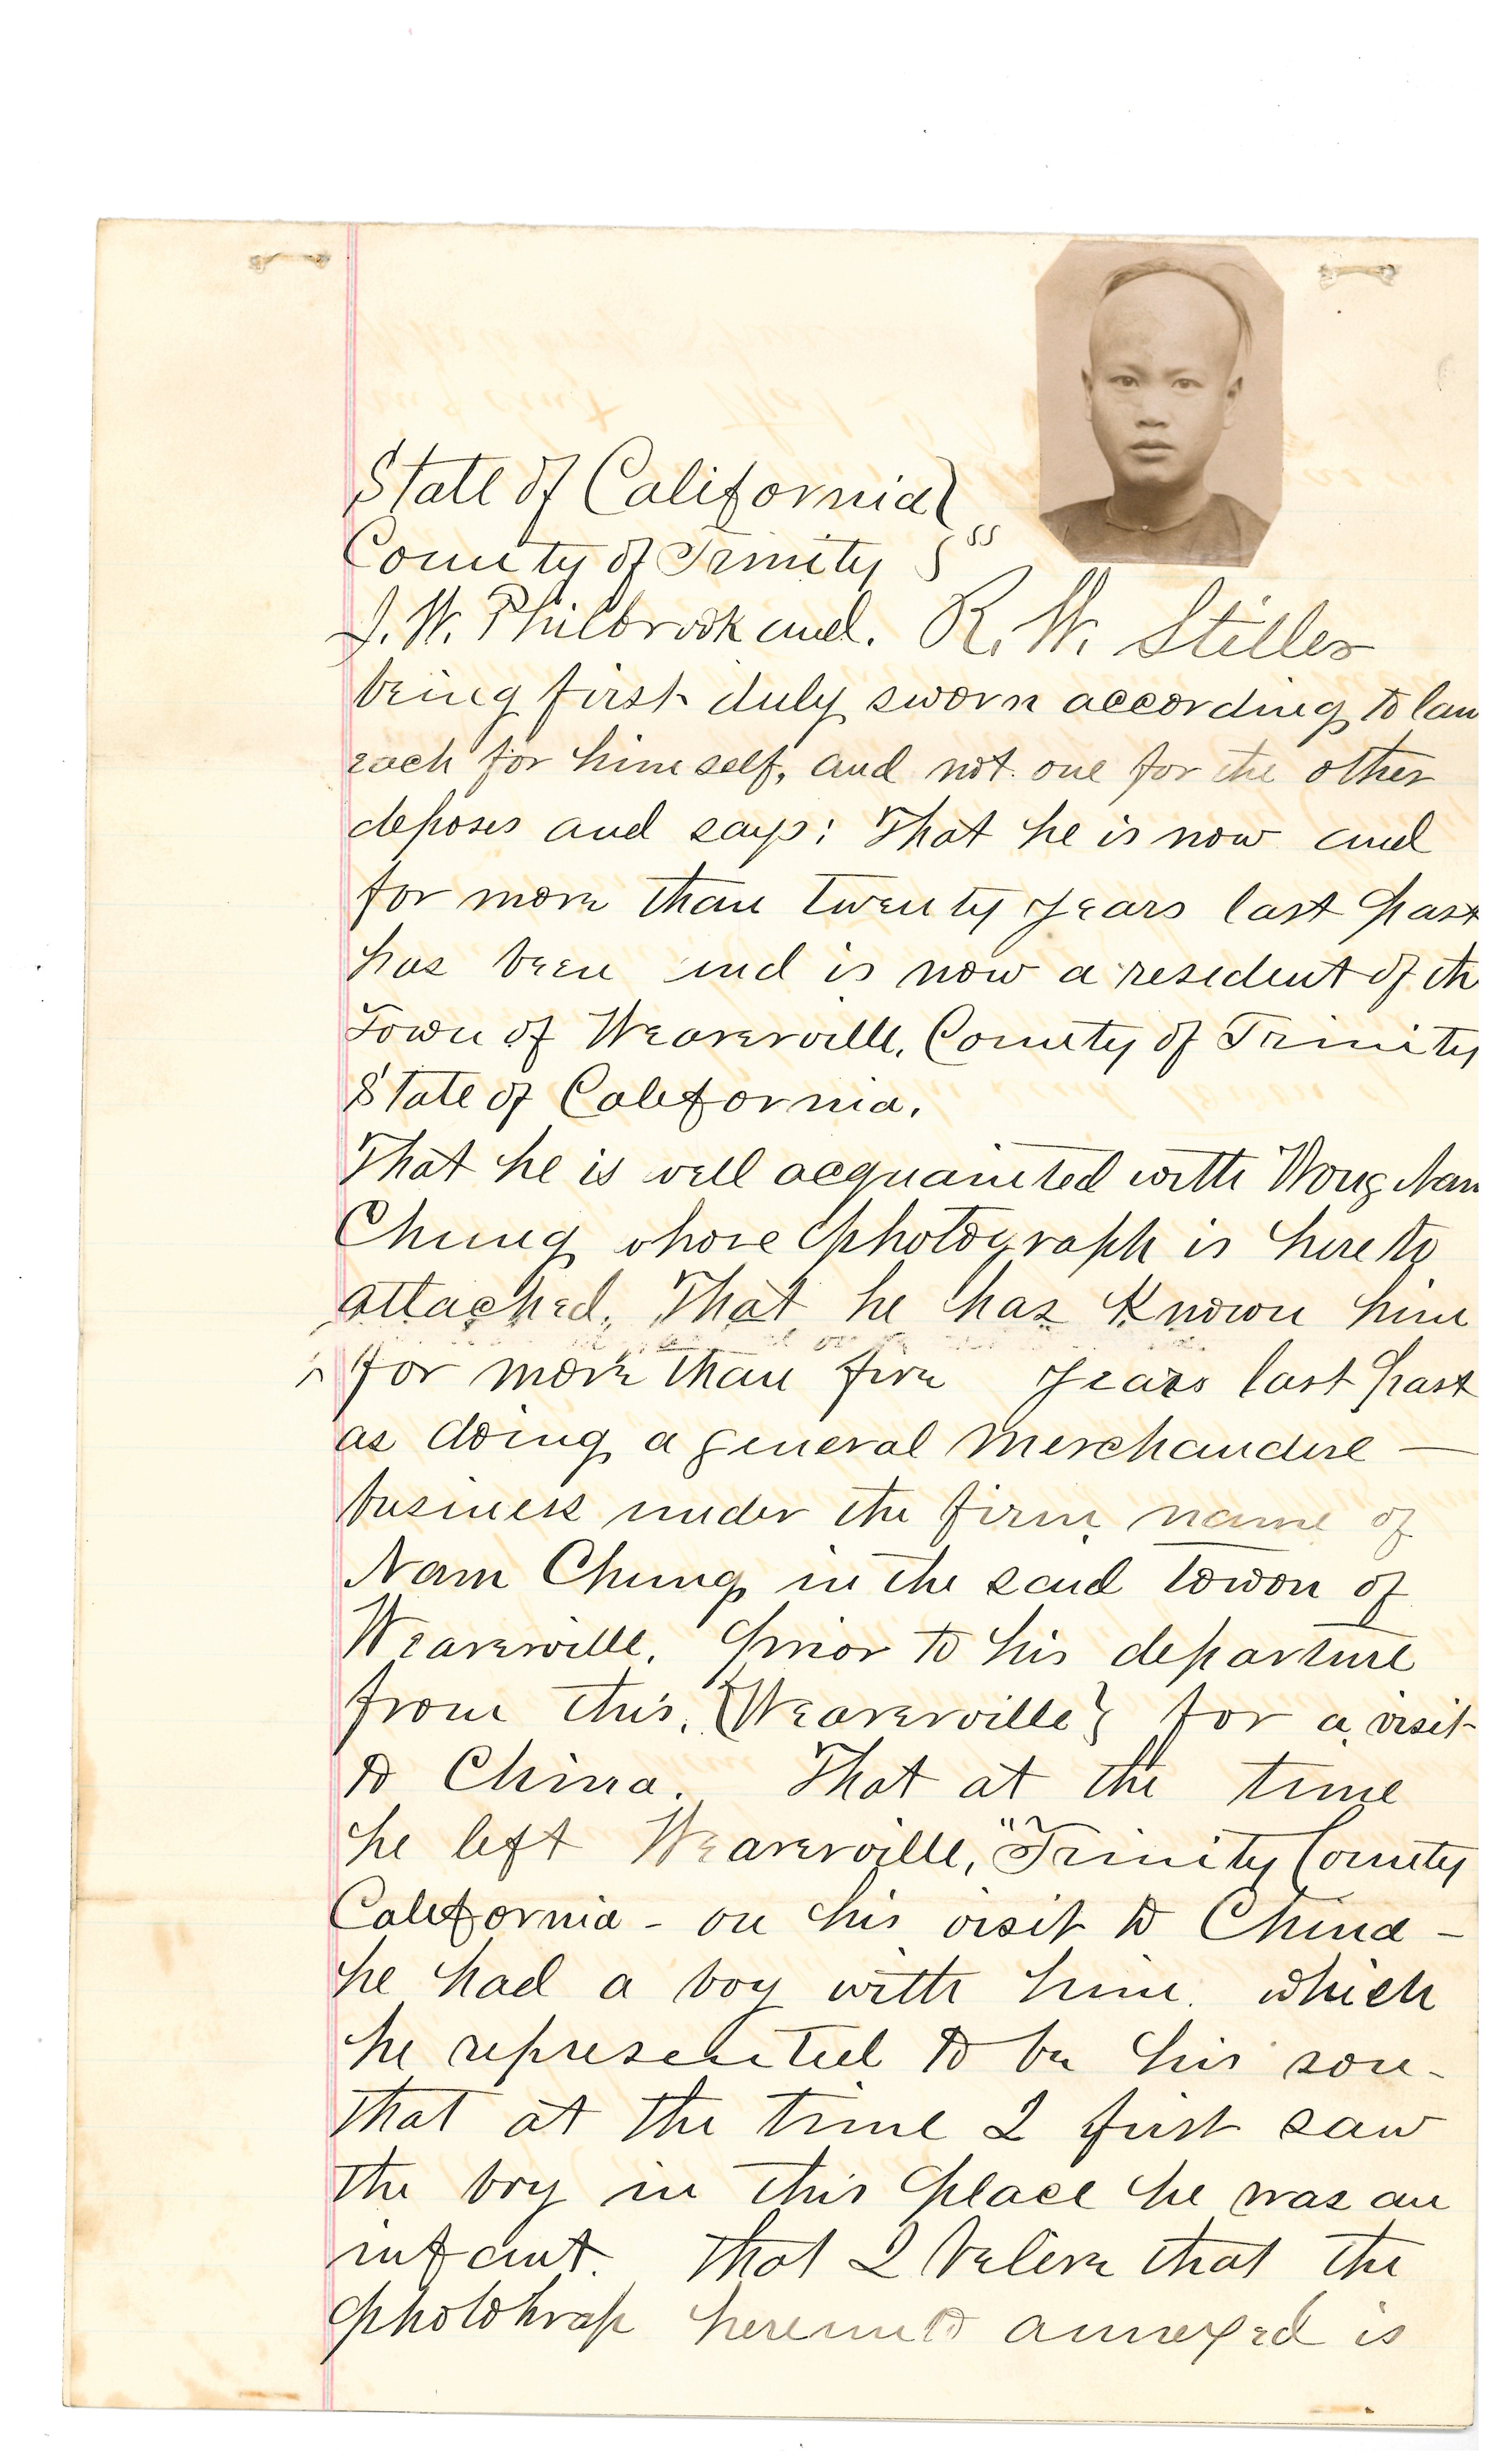 State of California }
County of Trinity } ss
J. W. Philbrook and. R. W. Stiller
being first duly sworn according to law
each for himself, and not one for the other
deposes and says: That he is now and
for more than twenty years last past
has been and is now a resident of th
Town of Weaverville, County of Trinity
State of California.
That he is well acquainted with Wong Nam
Chung whose photograph is here to
attached. That he has Known him
for more than five years last past
as doing a general merchandise —
business under the firm name of
Nam Chung in the said town of
Weaverville. prior to his departure
from this. {Weaverville} for a visit
to China. That at the time
he left Weaverville, "Trinity County
California - on his visit to China -
he had a boy with him. which
he represented to be his son -
that at the time I first saw
the boy in this place he was an
infant. that I beleve that the
photohrap hereunto annexed is